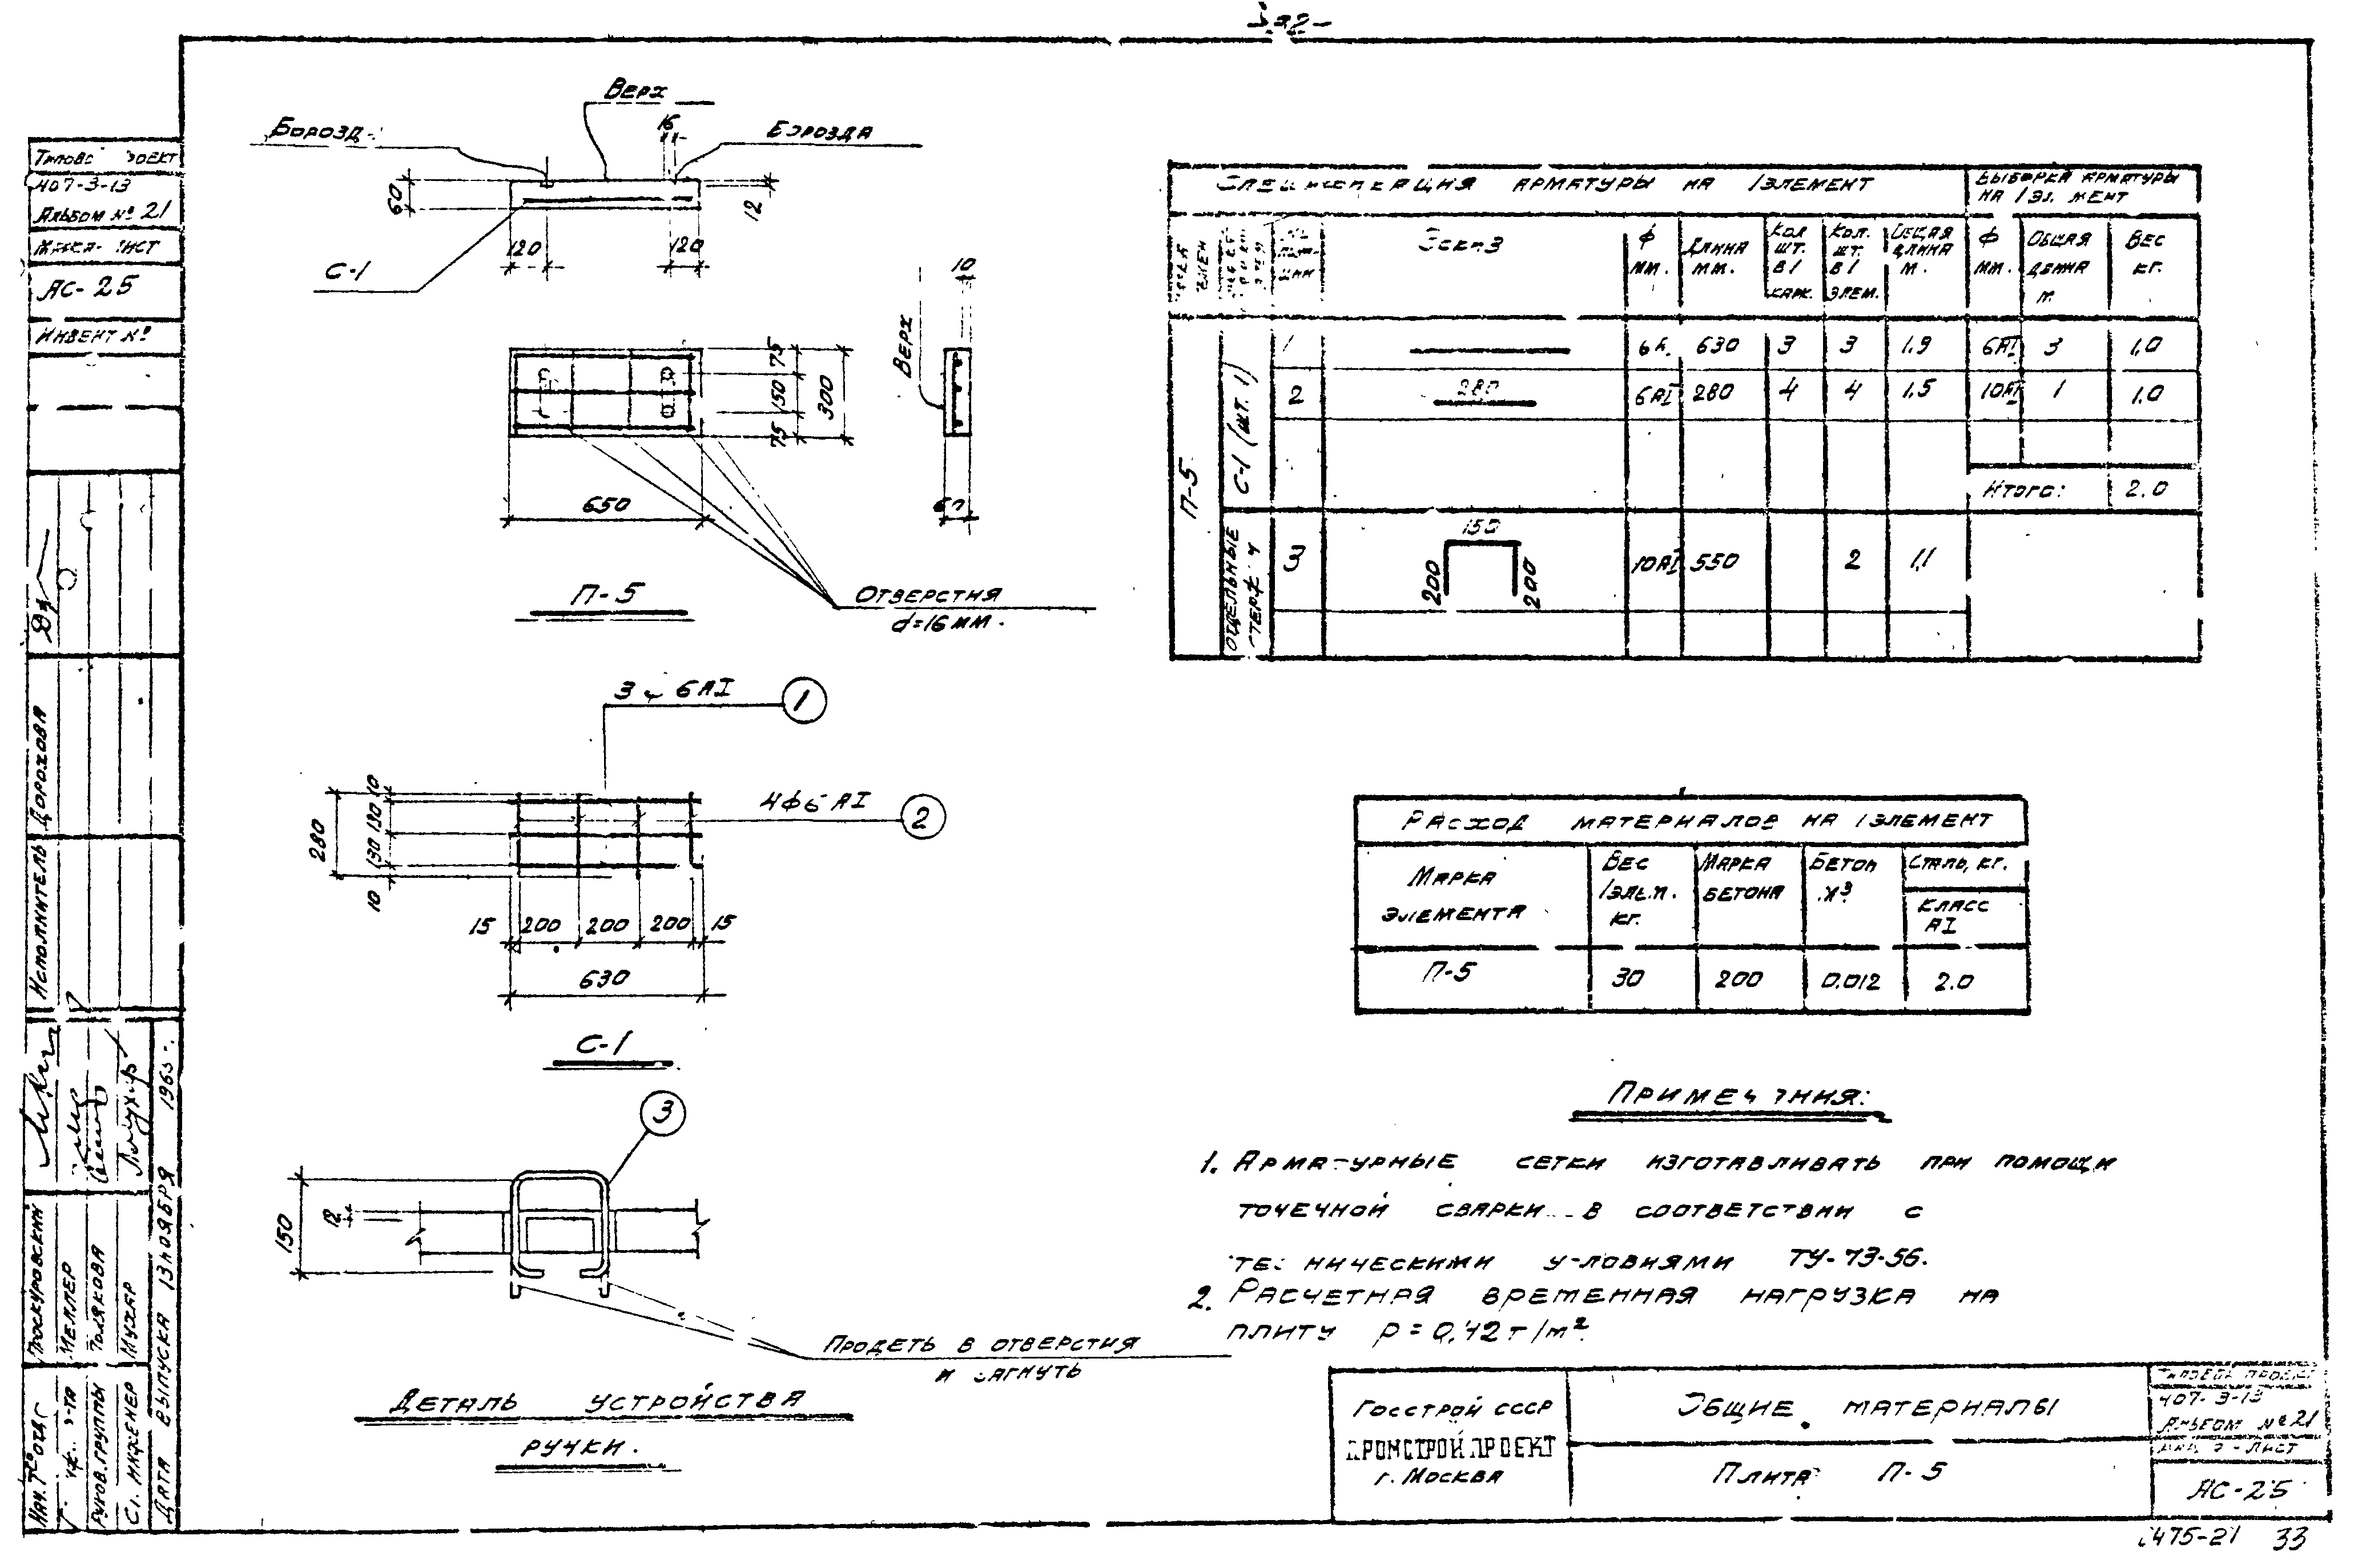 Верх
16
Борозда
60
12
120
120
С-1
10
Верх
75
150
75
300
650
60
П-5
Отверстия
d=16мм.
3 ф 6АI
1
4ф6АI
2
10
130
130
10
280
15 200 200 200 15
630
С-1
3
150
12
Продеть в отверстия
и загнуть
Деталь устройства
ручки.
Спецификация арматуры на 1элемент
Выборка арматуры
на 1 элемент
Эскиз
Ф мм.
Длина мм.
Кол шт. в 1 карк.
Кол. шт. в 1 элем.
Общая длина м.
Ф мм.
Общая длина м
Вес кг.
П-5
С-1 (шт. 1)
1 630 3 3 1.9 6АI 3 1.0
2 280 6АI 280 4 4 1.5 10АI 1 1.0
Итого: 2.0
Отдельные
3 150 200 200 10АI 550 2 1.1
Расход материалов на 1элемент
Марка элемента
Вес 1элем. кг.
Марка бетона
Бетон м³
Сталь, кг.
класс АI
П-5 30 200 0.012 2.0
Примечания:
1. Арматурные сетки изготавливать при помощи
точечной сварки в соответствии с
техническими условиями ТУ-73-56.
2. Расчетная временная нагрузка на
плиту р=0,42т/м².
Госстрой СССР
Промстройпроект
г. Москва
Общие материалы
Плита П-5
Типовой проект
407-3-13
Альбом №21
АС-25
475-21 33
407-3-13
Альбом №21
АС-25
Инвент №
Исполнитель Дорохова
Проскуровский
Меллер
Полякова
Мухар
Нач.
Руков.группы
Ст. инженер
Дата выпуска 13 ноября